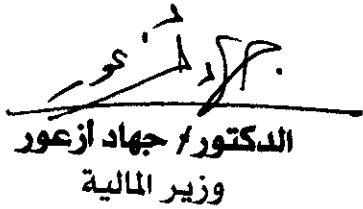 الدكتور / جهاد أزعور
وزير المالية